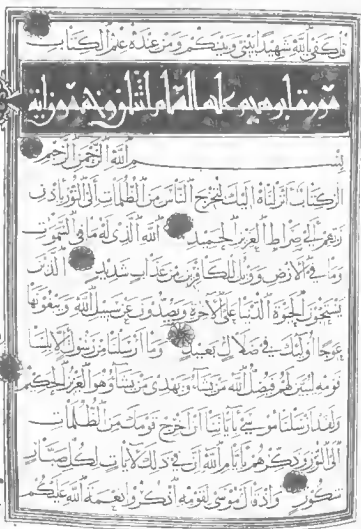 قُلْ كَفَى بِاللَّهِ شَهِيدًا بَيْنِي وَبَيْنَكُمْ وَمَنْ عِنْدَهُ عِلْمُ الْكِتَابِ
سورة ابرهيم عليه السلام وخمسون اية
بِسْمِ اللَّهِ الرَّحْمَنِ الرَّحِيمِ
الر كِتَابٌ أَنْزَلْنَاهُ إِلَيْكَ لِتُخْرِجَ النَّاسَ مِنَ الظُّلُمَاتِ إِلَى النُّورِ بِإِذْنِ
رَبِّهِمْ إِلَى صِرَاطِ الْعَزِيزِ الْحَمِيدِ اللَّهِ الَّذِي لَهُ مَا فِي السَّمَوَاتِ
وَمَا فِي الْأَرْضِ وَوَيْلٌ لِلْكَافِرِينَ مِنْ عَذَابٍ شَدِيدٍ الَّذِينَ
يَسْتَحِبُّونَ الْحَيَوةَ الدُّنْيَا عَلَى الْآخِرَةِ وَيَصُدُّونَ عَنْ سَبِيلِ اللَّهِ وَيَبْغُونَهَا
عِوَجًا أُولَئِكَ فِي ضَلَالٍ بَعِيدٍ وَمَا أَرْسَلْنَا مِنْ رَسُولٍ إِلَّا بِلِسَانِ
قَوْمِهِ لِيُبَيِّنَ لَهُمْ فَيُضِلُّ اللَّهُ مَنْ يَشَاءُ وَيَهْدِي مَنْ يَشَاءُ وَهُوَ الْعَزِيزُ الْحَكِيمُ
وَلَقَدْ أَرْسَلْنَا مُوسَى بِآيَاتِنَا أَنْ أَخْرِجْ قَوْمَكَ مِنَ الظُّلُمَاتِ
إِلَى النُّورِ وَذَكِّرْهُمْ بِأَيَّامِ اللَّهِ إِنَّ فِي ذَلِكَ لَآيَاتٍ لِكُلِّ صَبَّارٍ
شَكُورٍ وَإِذْ قَالَ مُوسَى لِقَوْمِهِ اذْكُرُوا نِعْمَةَ اللَّهِ عَلَيْكُمْ